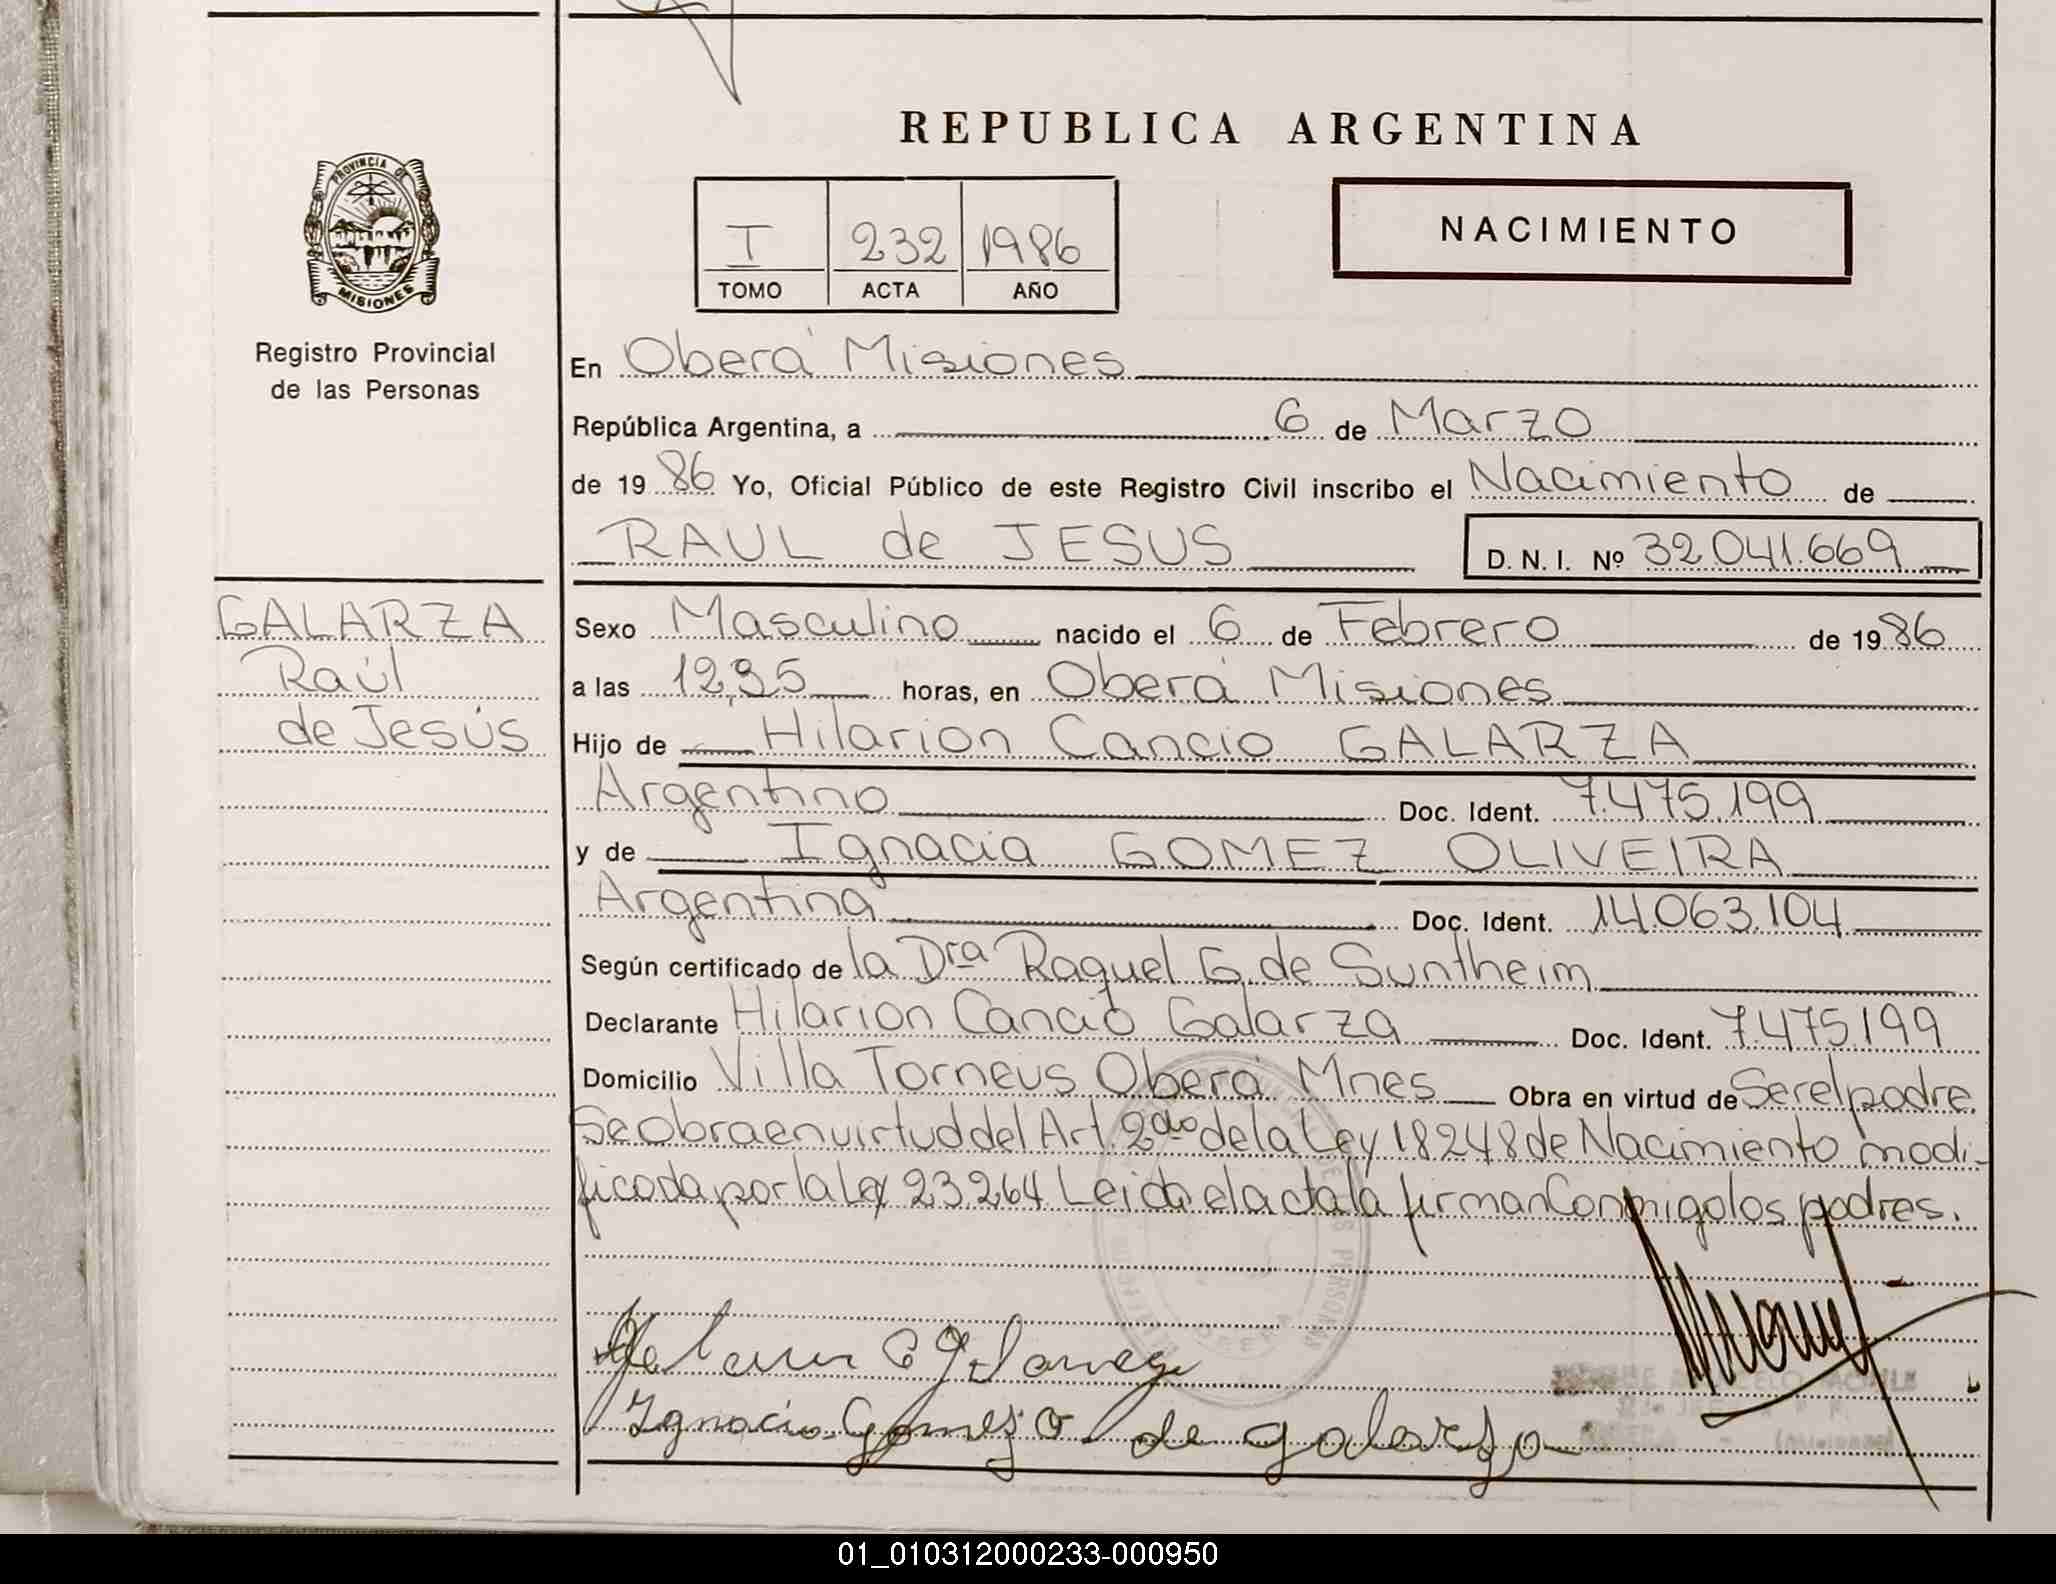 REPUBLICA ARGENTINA
PROVINCIA DE
MISIONES
Registro Provincial
de las Personas
I 232 1986
TOMO ACTA AÑO
NACIMIENTO
En Oberá Misiones
República Argentina, a 6 de Marzo
de 19 86 Yo, Oficial Público de este Registro Civil inscribo el Nacimiento de
RAUL de JESUS D. N. I. Nº 32.041.669
GALARZA
Raúl
de Jesús
Sexo Masculino nacido el 6 de Febrero de 19 86
a las 12,35 horas, en Oberá Misiones
Hijo de Hilarion Cancio GALARZA
Argentino Doc. Ident. 7.475.199
y de Ignacia GOMEZ OLIVEIRA
Argentina Doc. Ident. 14.063.104
Según certificado de la Dra Raquel G. de Suntheim
Declarante Hilarion Cancio Galarza Doc. Ident. 7.475.199
Domicilio Villa Torneus Oberá Mnes Obra en virtud de Ser el padre.
Se obra en virtud del Art. 2do de la Ley 18248 de Nacimiento modi-
ficada por la Ley 23.264 Leida el acta la firman Conmigo los padres.
DE LAS PERSONAS
OBERA
Ignacia Gomez O de galarza
01_010312000233-000950